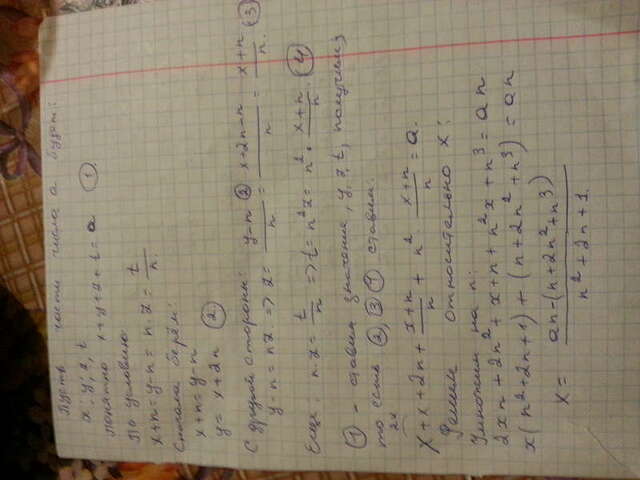 Пусть части числа a будет:
x; y; z, t
Понятно x+y+z+t=a ①
По условию
x+n=y-n= n·z = t/n.
Сначала берём:
x+n=y-n
y= x+2n ②.
С другой стороны:
y-n=nz => z= (y-n)/n ②= (x+2n-n)/n = (x+n)/n. ③
Еще: n·z= t/n => t=n²z= n²·(x+n)/n. ④
① - ставим значение, y, z, t, получим,
то есть ②, ③ ④ ставим.
2x
x+x+2n+ (x+n)/n + n²·(x+n)/n = a.
Решим относительно x:
Умножим на n:
2xn+2n²+x+n+n²x+n³=an
x(n²+2n+1)+(n+2n²+n³)=an
x= (an-(n+2n²+n³))/(n²+2n+1.)